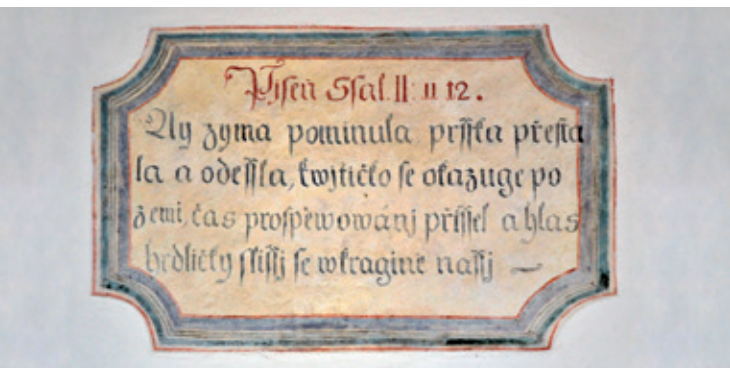 Pjseň Ssal. II: 11 12.
Ay zyma pominula prsska přesta
la a odessla, kwjtičko se okazuge po
zemi, čas prospěwowánj přissel a hlas
hrdličky slissj se wkragině nassij